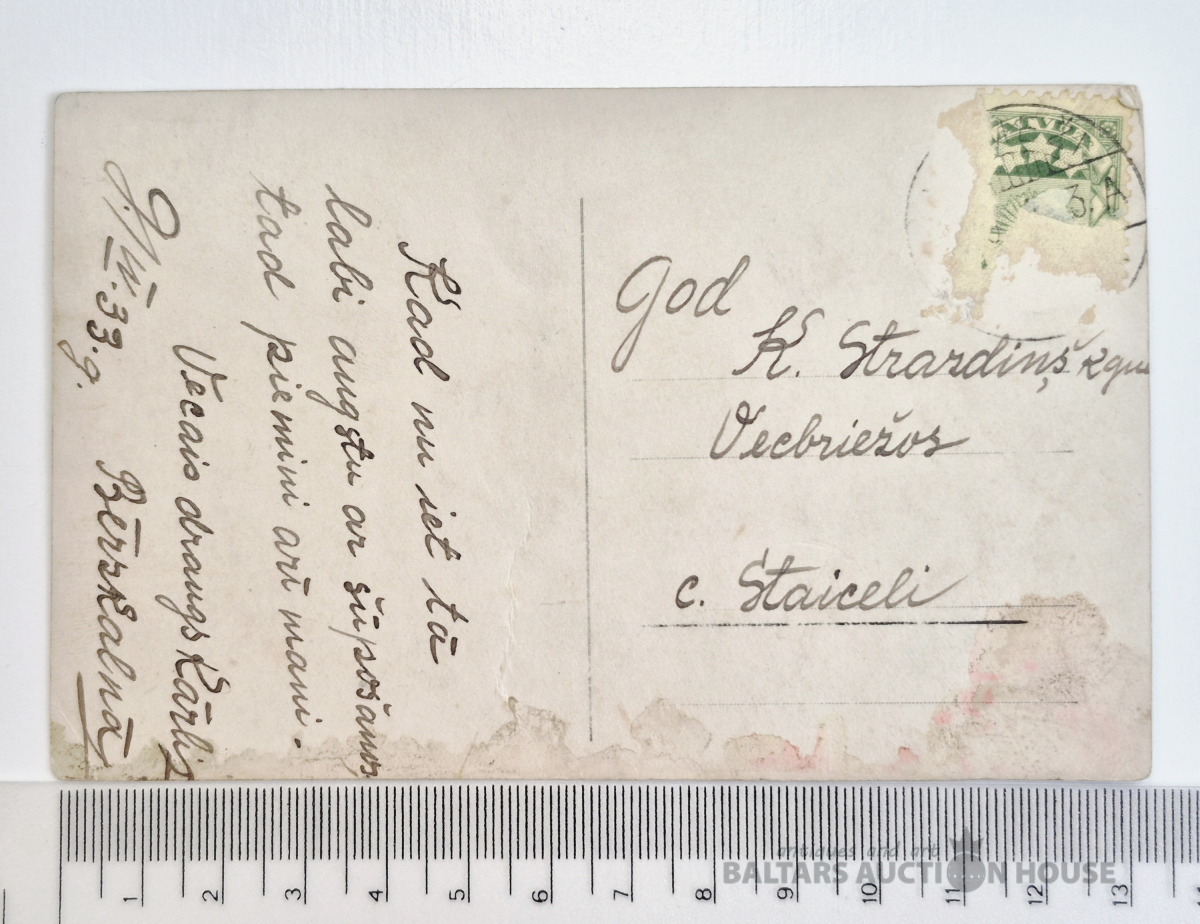 Kad nu iet tā
labi augstu ar šūpošanos
tad piemini arī mani.
Vecais draugs Kārlis
Bērzkalnā
33.g.
God
K. Strazdiņš kgu
Vecbriežos
c. Staiceli
LATVIJA
3. A
antiques and art
BALTARS AUCTION HOUSE
1 2 3 4 5 6 7 8 9 10 11 12 13